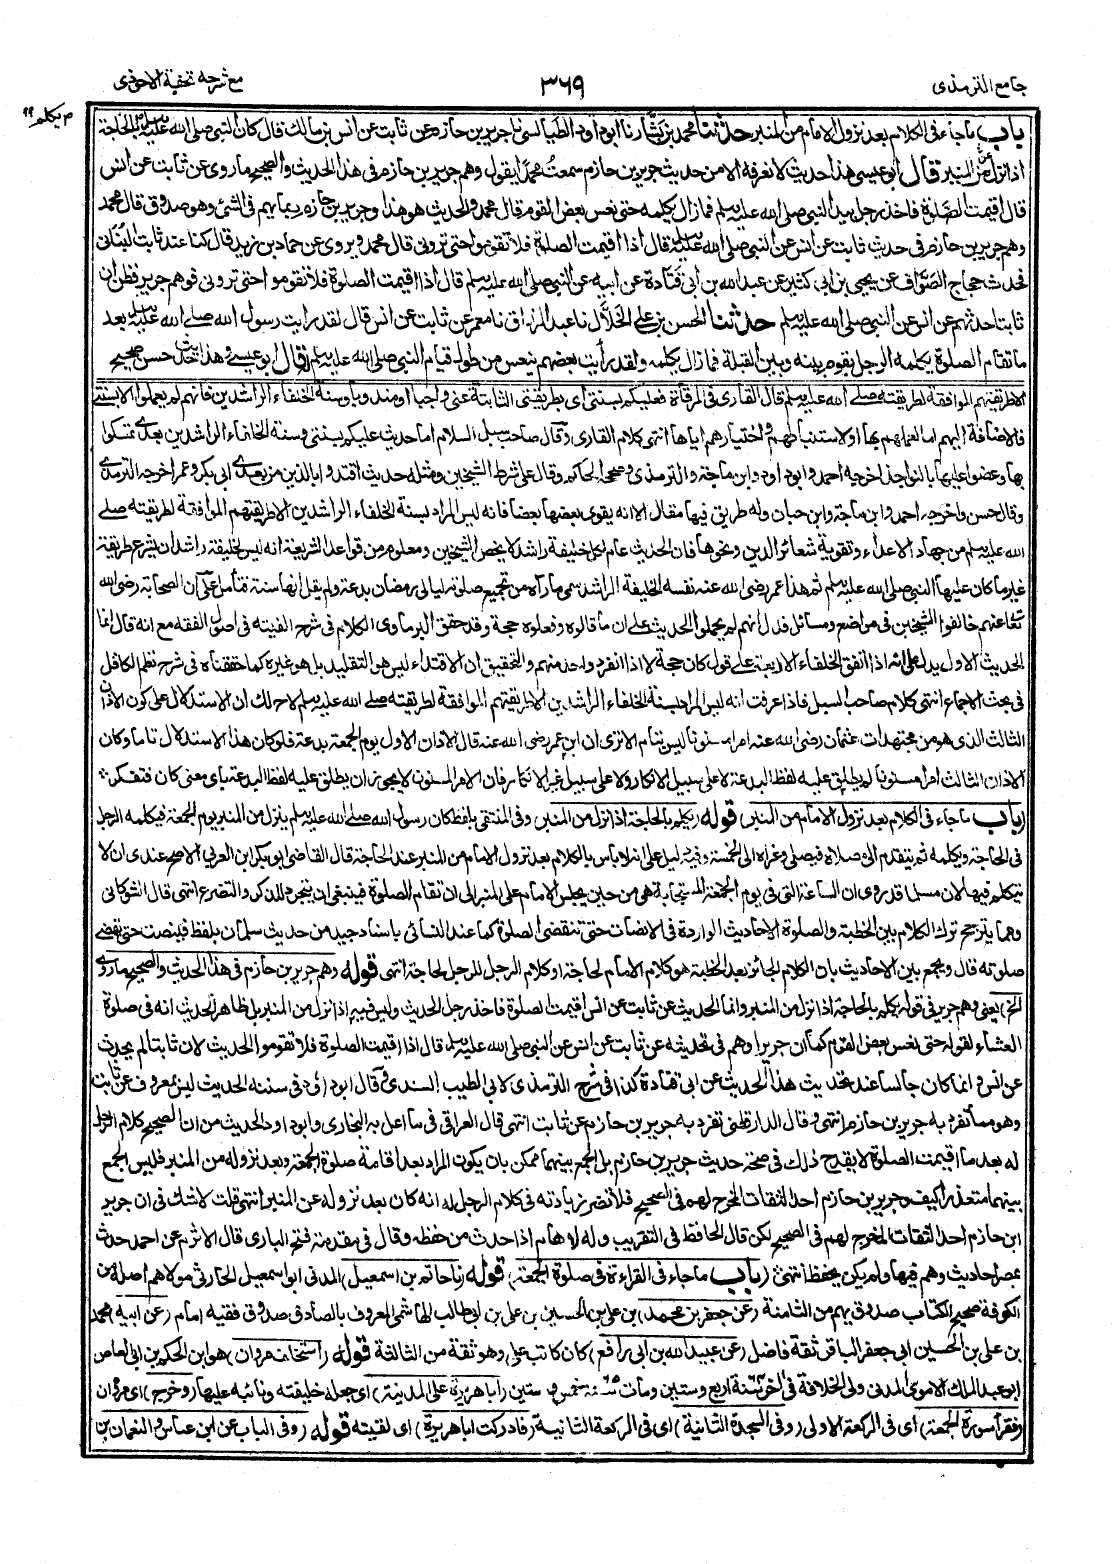 جامع الترمذی
۳۶۹
مع شرحه تحفة الاحوذی
م یکلم ۹۹
باب ماجاء فی الکلام بعد نزول الامام من المنبر حدثنا محمد بن بشار نا ابو داود الطیالسی نا جریر بن حازم عن ثابت عن انس بن مالك قال کان النبی صلی الله علیه وسلم بالحاجة
اذا نزل عن المنبر قال ابو عیسی هذا حدیث لا نعرفه الا من حدیث جریر بن حازم سمعت محمدا یقول وهم جریر بن حازم فی هذا الحدیث والصحیح ما روی عن ثابت عن انس
قال اقیمت الصلوة فاخذ رجل بید النبی صلی الله علیه وسلم فما زال یکلمه حتی نعس بعض القوم قال محمد والحدیث هو هذا وجریر بن حازم ربما یهم فی الشئ وهو صدوق قال محمد
وهم جریر بن حازم فی حدیث ثابت عن انس عن النبی صلی الله علیه وسلم قال اذا اقیمت الصلوة فلا تقوموا حتی ترونی قال محمد ویروی عن حماد بن زید قال کنا عند ثابت البنانی
فحدث حجاج الصواف عن یحیی بن ابی کثیر عن عبد الله بن ابی قتادة عن ابیه عن النبی صلی الله علیه وسلم قال اذا اقیمت الصلوة فلا تقوموا حتی ترونی فوهم جریر فظن ان
ثابتا حدثهم عن انس عن النبی صلی الله علیه وسلم حدثنا الحسن بن علی الخلال نا عبد الرزاق نا معمر عن ثابت عن انس قال لقد رایت رسول الله صلی الله علیه وسلم بعد
ما تقام الصلوة یکلمه الرجل یقوم بینه وبین القبلة فما زال یکلمه ولقد رأیت بعضهم ینعس من طول قیام النبی صلی الله علیه وسلم قال ابو عیسی وهذا حدیث حسن صحیح
الا طریقتهم الموافقة لطریقته صلی الله علیه وسلم قال القاری فی المرقاة فعلیکم بسنتی ای بطریقتی الثابتة عنی واجبا او مندوبا وسنة الخلفاء الراشدین فانهم لم یعملوا الا بسنتی
فالاضافة الیهم اما لعملهم بها او لاستنباطهم واختیارهم ایاها انتهی کلام القاری وقال صاحب سبل السلام اما حدیث علیکم بسنتی وسنة الخلفاء الراشدین بعدی تمسکوا
بها وعضوا علیها بالنواجذ اخرجه احمد وابو داود وابن ماجة والترمذی وصححه الحاکم وقال علی شرط الشیخین ومثله حدیث اقتدوا بالذین من بعدی ابی بکر وعمر اخرجه الترمذی
وقال حسن واخرجه احمد وابن ماجة وابن حبان وله طریق فیها مقال الا انه یقوی بعضها بعضا فانه لیس المراد بسنة الخلفاء الراشدین الا طریقتهم الموافقة لطریقته صلی
الله علیه وسلم من جهاد الاعداء وتقویة شعائر الدین ونحوها فان الحدیث عام لکل خلیفة راشد لا یخص الشیخین ومعلوم من قواعد الشریعة انه لیس لخلیفة راشد ان یشرع طریقة
غیر ما کان علیها النبی صلی الله علیه وسلم ثم هذا عمر رضی الله عنه نفسه الخلیفة الراشد سمی ما رآه من تجمیع صلوة لیالی رمضان بدعة ولم یقل انها سنة فتأمل علی ان الصحابة رضی الله
تعالی عنهم خالفوا الشیخین فی مواضع ومسائل فدل انهم لم یحملوا الحدیث علی ان ما قالوه وفعلوه حجة وقد حقق البرماوی الکلام فی شرح الفیته فی اصول الفقه مع انه قال انما
الحدیث الاول یدل علی انه اذا اتفق الخلفاء الاربعة علی قول کان حجة لا اذا انفرد واحد منهم والتحقیق ان الاقتداء لیس هو التقلید بل هو غیره کما حققناه فی شرح نظم الکافل
فی بحث الاجماع انتهی کلام صاحب السبل فاذا عرفت انه لیس المراد بسنة الخلفاء الراشدین الا طریقتهم الموافقة لطریقته صلی الله علیه وسلم لاح لك ان الاستدلال علی کون الاذان
الثالث الذی هو من مجتهدات عثمان رضی الله عنه امرا مسنونا لیس بتام الا تری ان ابن عمر رضی الله عنه قال الاذان الاول یوم الجمعة بدعة فلو کان هذا الاستدلال تاما وکان
الاذان الثالث امرا مسنونا لم یطلق علیه لفظ البدعة لا علی سبیل الانکار ولا علی سبیل غیر الانکار فان الامر المسنون لا یجوز ان یطلق علیه لفظ البدعة بای معنی کان فتفکر
(باب ماجاء فی الکلام بعد نزول الامام من المنبر) قوله (یکلم بالحاجة اذا نزل من المنبر) وفی المنتقی بلفظ کان رسول الله صلی الله علیه وسلم ینزل من المنبر یوم الجمعة فیکلمه الرجل
فی الحاجة ویکلمه ثم یتقدم الی مصلاه فیصلی وعزاه الی الخمسة وفیه دلیل علی انه لا باس بالکلام بعد نزول الامام من المنبر عند الحاجة قال القاضی ابو بکر ابن العربی الاصح عندی ان لا
یتکلم فیها لان مسلما قد روی ان الساعة التی فی یوم الجمعة المستجابة هی من حین یجلس الامام علی المنبر الی ان تقام الصلوة فینبغی ان یتجرد للذکر والتضرع انتهی قال الشوکانی
ومما یترجح ترك الکلام بین الخطبة والصلوة الاحادیث الواردة فی الانصات حتی تنقضی الصلوة کما عند النسائی باسناد جید من حدیث سلمان بلفظ فینصت حتی یقضی
صلوته قال ویجمع بین الاحادیث بان الکلام الجائز بعد الخطبة هو کلام الامام لحاجة او کلام الرجل للرجل لحاجة انتهی قوله (وهم جریر بن حازم فی هذا الحدیث والصحیح ما روی
الخ) یعنی وهم جریر فی قوله یکلم بالحاجة اذا نزل من المنبر وانما الحدیث عن ثابت عن انس اقیمت الصلوة فاخذ رجل الحدیث ولیس فیه اذا نزل من المنبر بل ظاهر الحدیث انه فی صلوة
العشاء لقوله حتی نعس بعض القوم کما ان جریرا وهم فی تحدیثه عن ثابت عن انس عن النبی صلی الله علیه وسلم قال اذا اقیمت الصلوة فلا تقوموا الحدیث لان ثابتا لم یحدث
عن انس وانما کان جالسا عند تحدیث هذا الحدیث عن ابی قتادة کذا فی شرح الترمذی لابی الطیب السندی وقال ابو داود فی سننه الحدیث لیس بمعروف عن ثابت
وهو مما تفرد به جریر بن حازم انتهی وقال الدارقطنی تفرد به جریر بن حازم عن ثابت انتهی قال العراقی فی ما اعل به البخاری وابو داود الحدیث من ان الصحیح کلام الرجل
له بعد ما اقیمت الصلوة لا یقدح ذلك فی صحة حدیث جریر بن حازم بل الجمع بینهما ممکن بان یکون المراد بعد اقامة صلوة الجمعة وبعد نزوله من المنبر فلیس الجمع
بینهما متعذرا کیف وجریر بن حازم احد الثقات المخرج لهم فی الصحیح فلا تضر زیادته فی کلام الرجل له انه کان بعد نزوله عن المنبر انتهی قلت لا شك فی ان جریر
ابن حازم احد الثقات المخرج لهم فی الصحیح لکن قال الحافظ فی التقریب وله اوهام اذا حدث من حفظه وقال فی مقدمة فتح الباری قال الاثرم عن احمد حدث
بمصر احادیث وهم فیها ولم یکن یحفظ انتهی (باب ماجاء فی القراءة فی صلوة الجمعة) قوله (نا حاتم بن اسمعیل) المدنی ابو اسمعیل الحارثی مولاهم اصله من
الکوفة صحیح الکتاب صدوق یهم من الثامنة (عن جعفر بن محمد) بن علی بن الحسین بن علی بن ابی طالب الهاشمی المعروف بالصادق صدوق فقیه امام (عن ابیه) محمد
بن علی بن الحسین ابی جعفر الباقر ثقة فاضل (عن عبید الله بن ابی رافع) کان کاتب علی وهو ثقة من الثالثة قوله (استخلف مروان) هو ابن الحکم بن ابی العاص
ابو عبد الملك الاموی المدنی ولی الخلافة فی آخر سنة اربع وستین ومات سنة خمس وستین (ابا هریرة علی المدینة) ای جعله خلیفته ونائبه علیها (وخرج) ای مروان
(وقرأ سورة الجمعة) ای فی الرکعة الاولی (وفی السجدة الثانیة) ای فی الرکعة الثانیة (فادرکت ابا هریرة) ای لقیته قوله (وفی الباب عن ابن عباس والنعمان بن